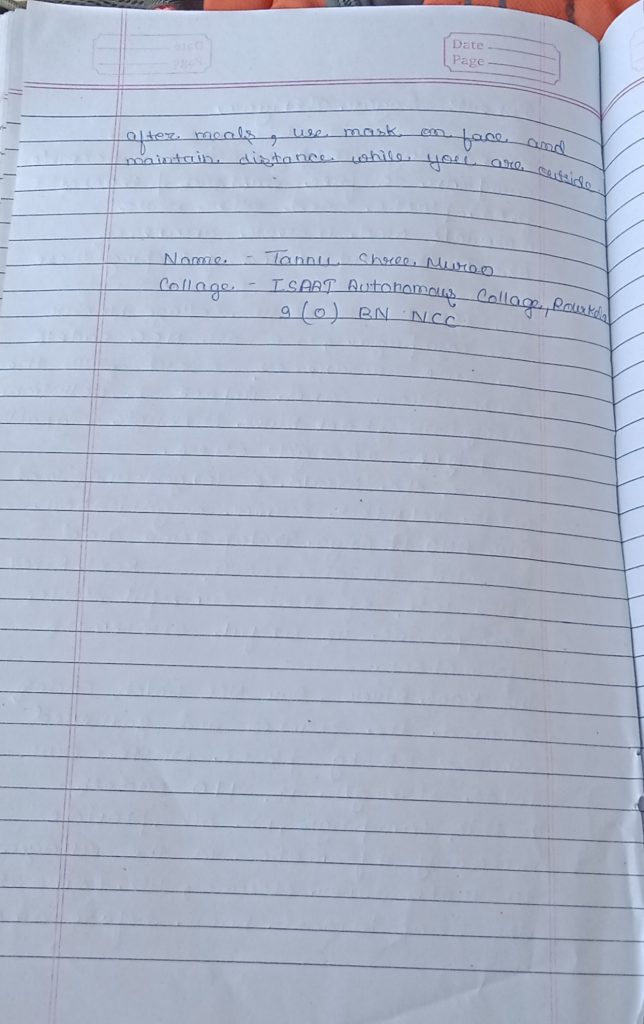 Date
Page
after meals, use mask on face and
maintain distance while you are outside
Name - Tannu Shree
Collage - ISAAT Autonomous Collage, Rourkela
9 (O) BN NCC